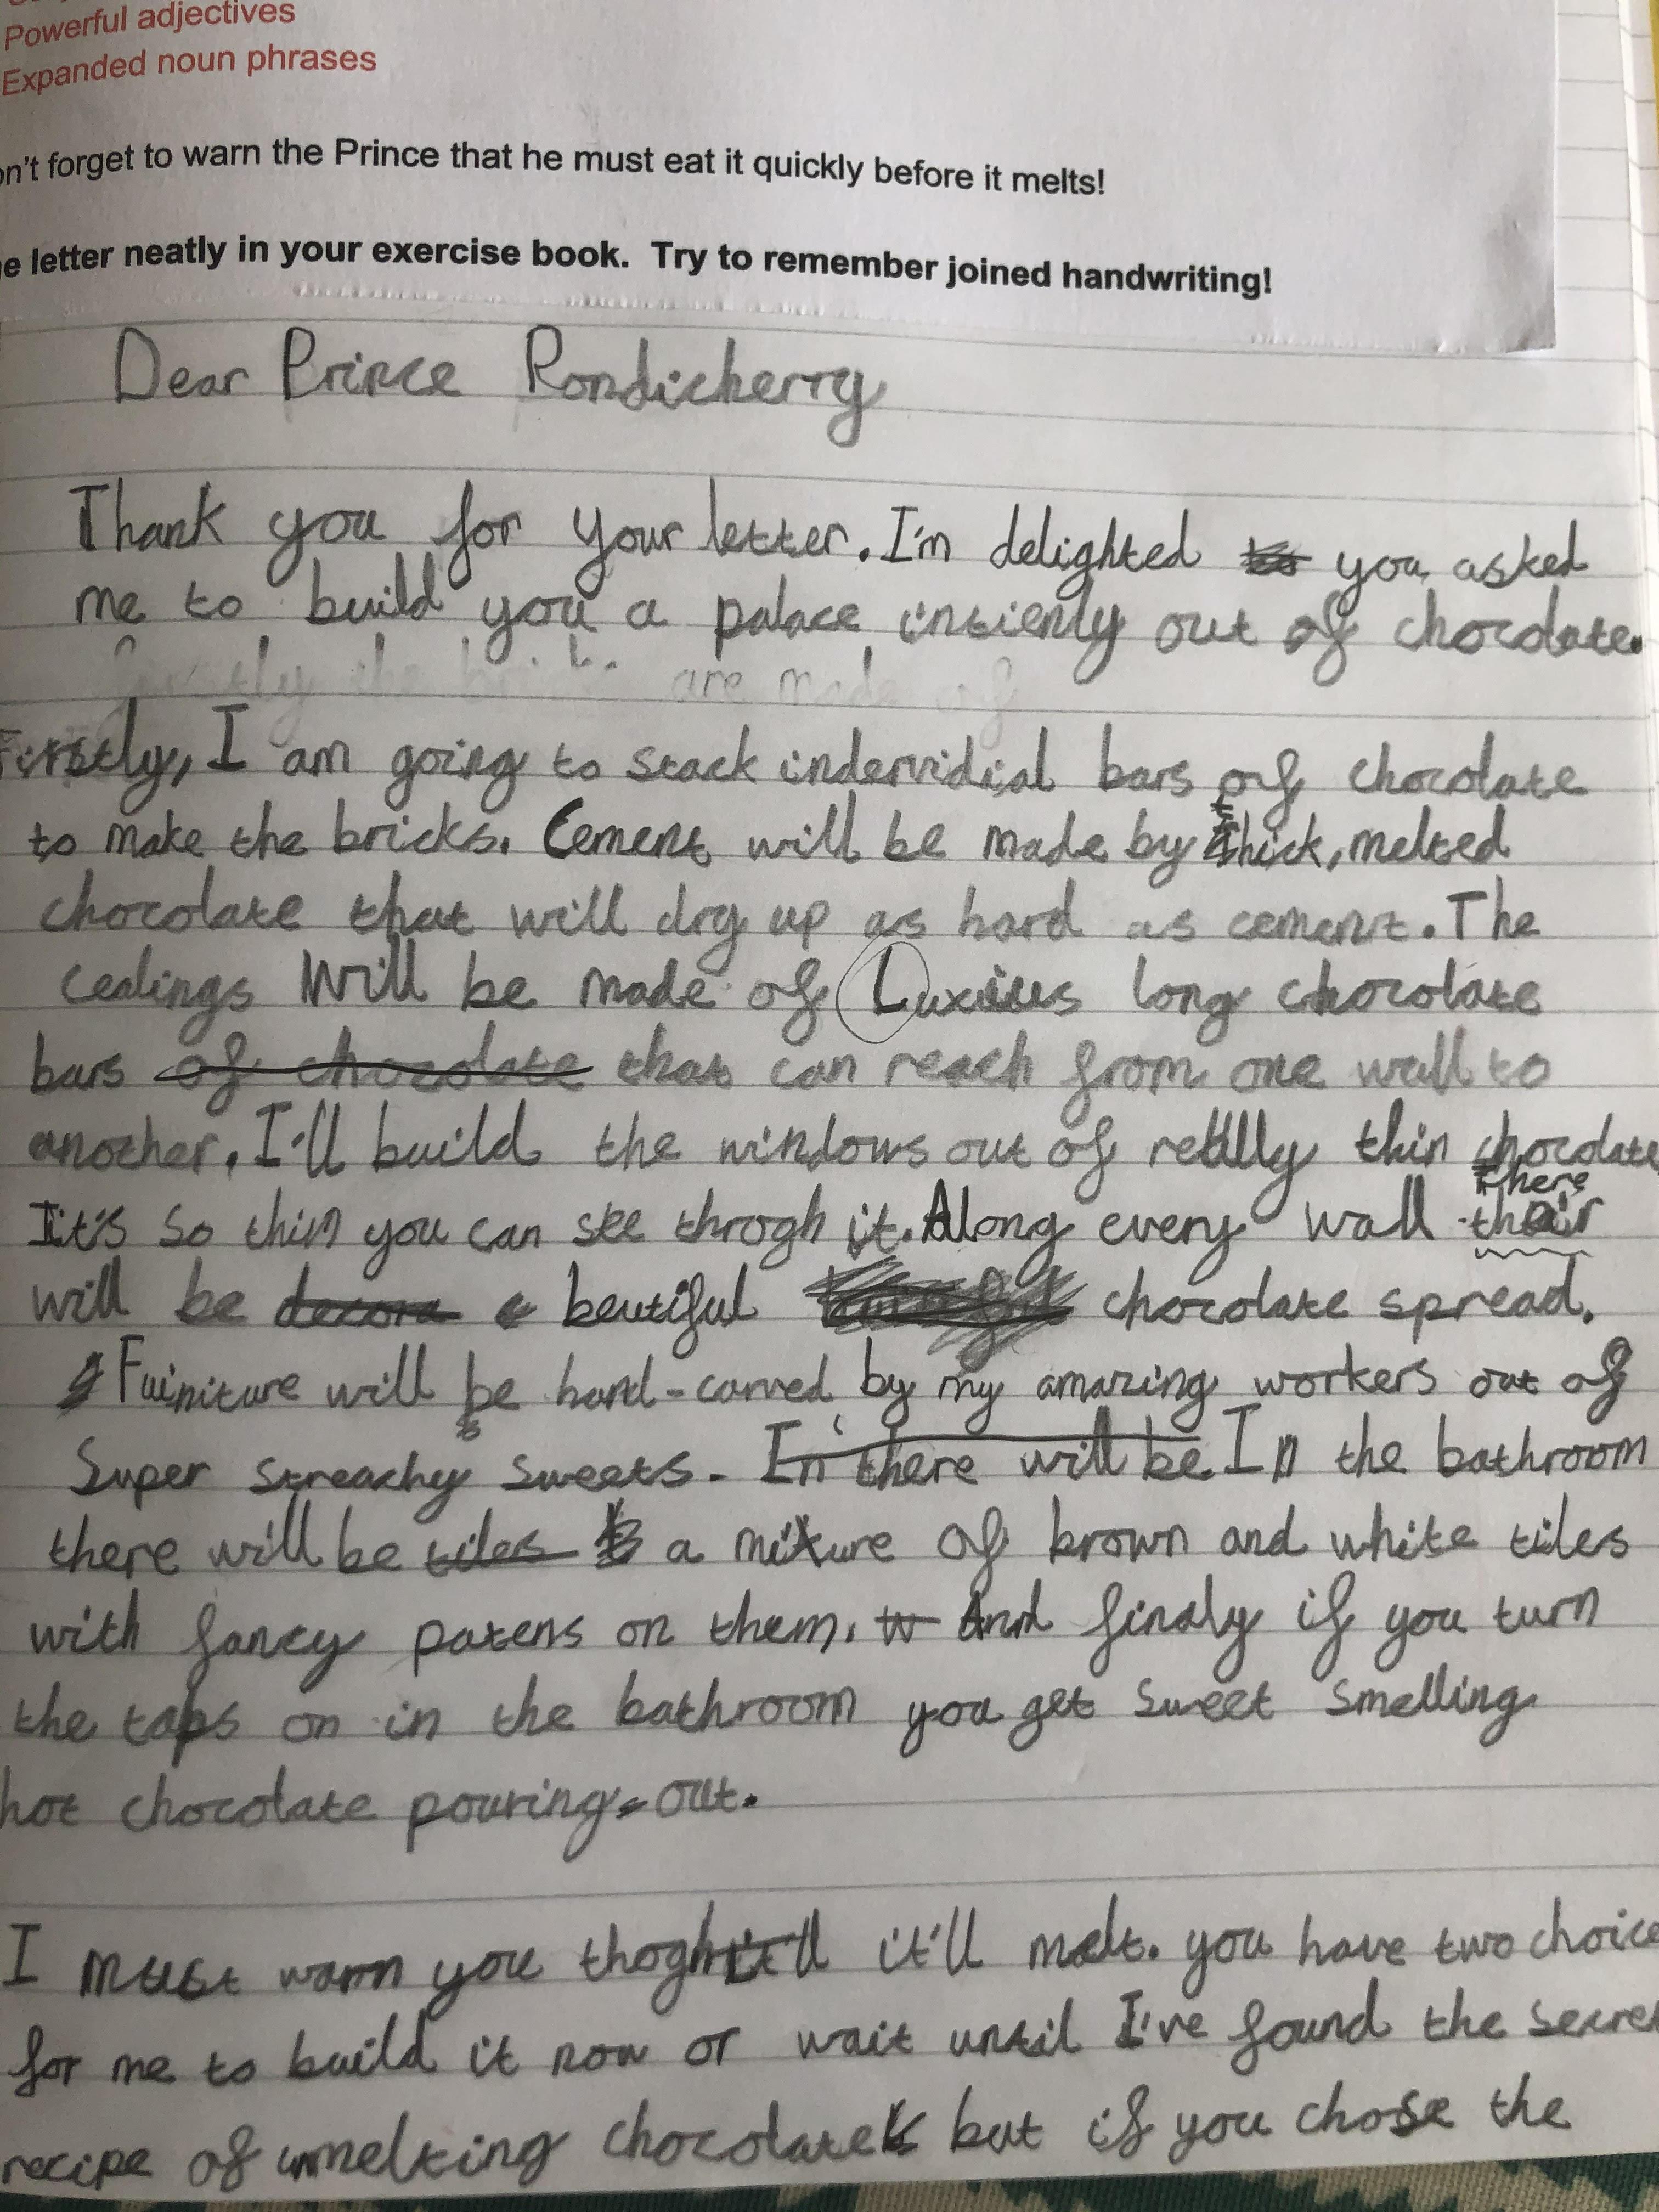 Powerful adjectives
Expanded noun phrases
on't forget to warn the Prince that he must eat it quickly before it melts!
e letter neatly in your exercise book. Try to remember joined handwriting!
Dear Prince Pondicherry
Thank you for your letter. I'm delighted you asked
me to build you a palace intienly out of chocolate.
are made of
Firstly, I am going to stack indervidial bars of chocolate
to make the bricks. Cement will be made by thick, melted
chocolate that will dry up as hard as cement. The
cealings Will be made of Luxiius long chocolate
bars of chocolate that can reach from one wall to
another. I'll build the windows out of really thin chocolate
It's so thin you can see throgh it. Along every wall their there
will be decora beutiful chocolate spread.
Fuiniture will be hand-carved by my amazing workers out of
Super streachy sweets. In there will be In the bathroom
there will be tiles a mixture of brown and white tiles
with fancy patens on them. And finaly if you turn
the taps on in the bathroom you get sweet smelling
hot chocolate pouring out.
I must warn you thogh it'll it'll melt. you have two choice
for me to build it now or wait until I've found the secre
recipe of unmelting chocolate but if you chose the